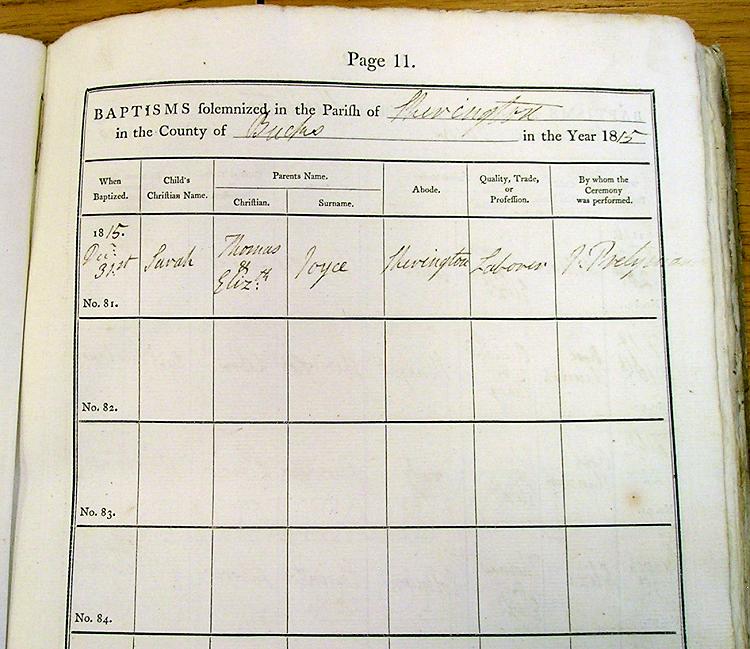 Page 11.
BAPTISMS solemnized in the Parish of Sherington
in the County of Bucks in the Year 1815
When
Baptized.
Child's
Christian Name.
Parents Name.
Christian.
Surname.
Abode.
Quality, Trade,
or
Profession.
By whom the
Ceremony
was performed.
1815.
Decr.
31st
No. 81.
Sarah
Thomas
&
Elizth
Joyce
Sherington
Labourer
J.
No. 82.
No. 83.
No. 84.